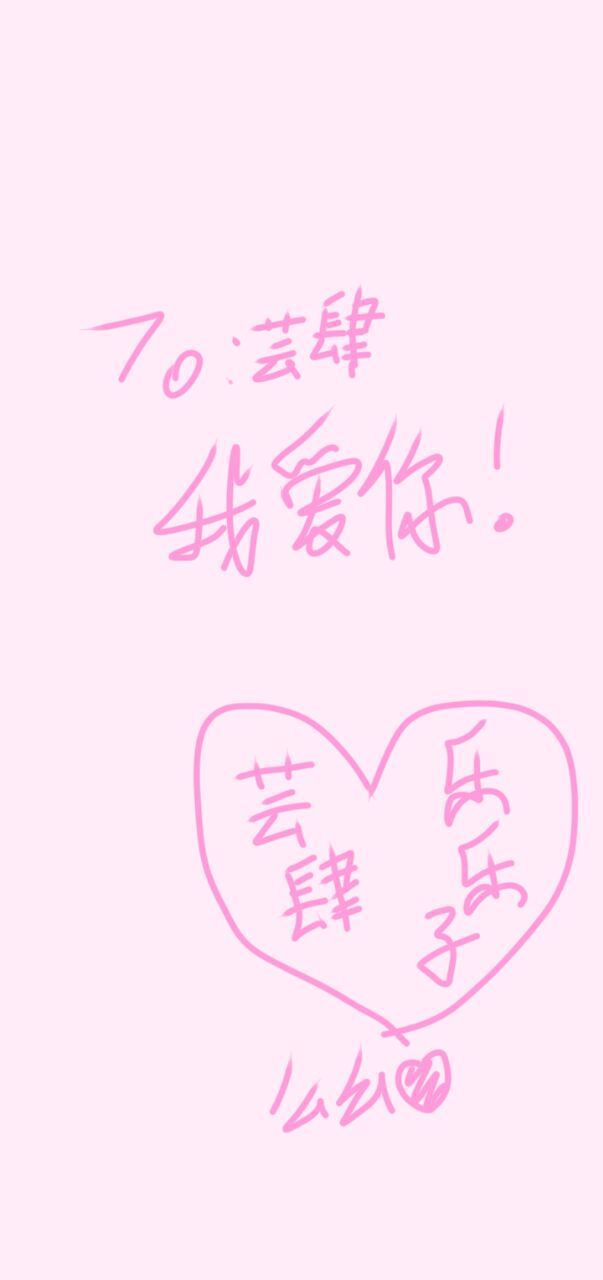 To:芸肆
我爱你!
芸肆
乐乐子
么么